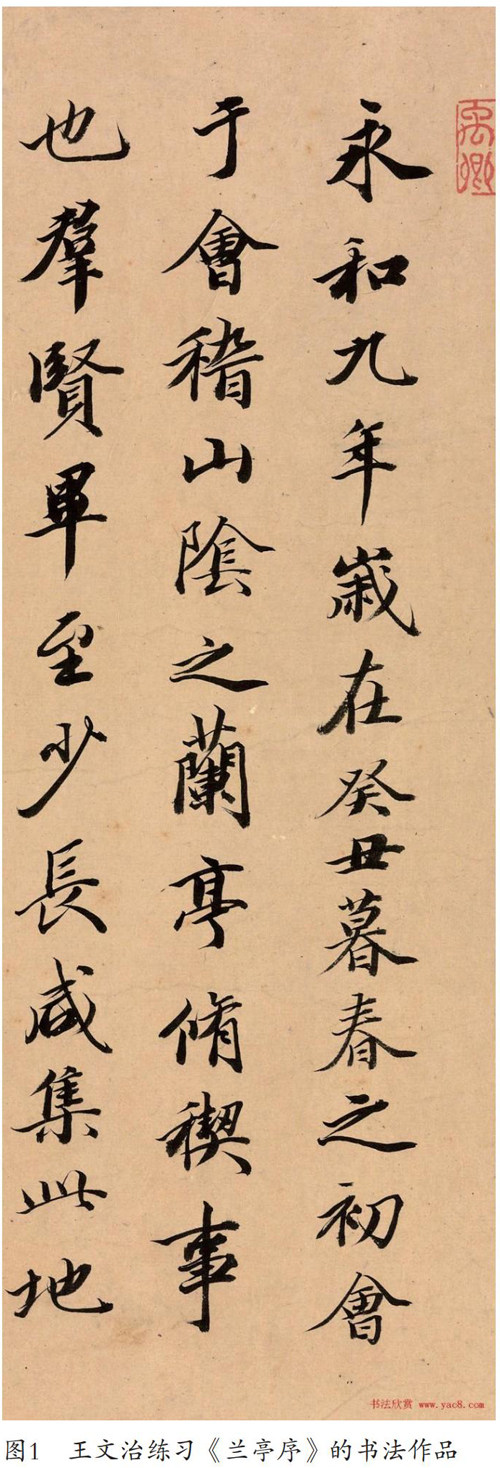 禹卿
永和九年歲在癸丑暮春之初會
于會稽山陰之蘭亭脩稧事
也羣賢畢至少長咸集此地
书法欣赏 www.yac8.com
图1 王文治练习《兰亭序》的书法作品